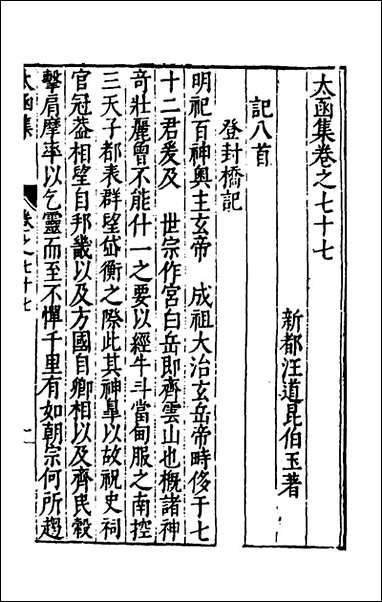 太函集卷之七十七
新都汪道昆伯玉著
記八首
登封橋記
明祀百神輿主玄帝　成祖大治玄岳帝畤侈于七
十二君爰及　世宗作宮白岳即齊雲山也概諸神
奇壯麗曾不能什一之要以經牛斗當甸服之南控
三天子都表群望岱衡之際此其神皐以故祝史祠
官冠蓋相望自邦畿以及方國自卿相以及齊民轂
擊肩摩率以乞靈而至不憚千里有如朝宗何所趨
太函集
卷之七十七
一